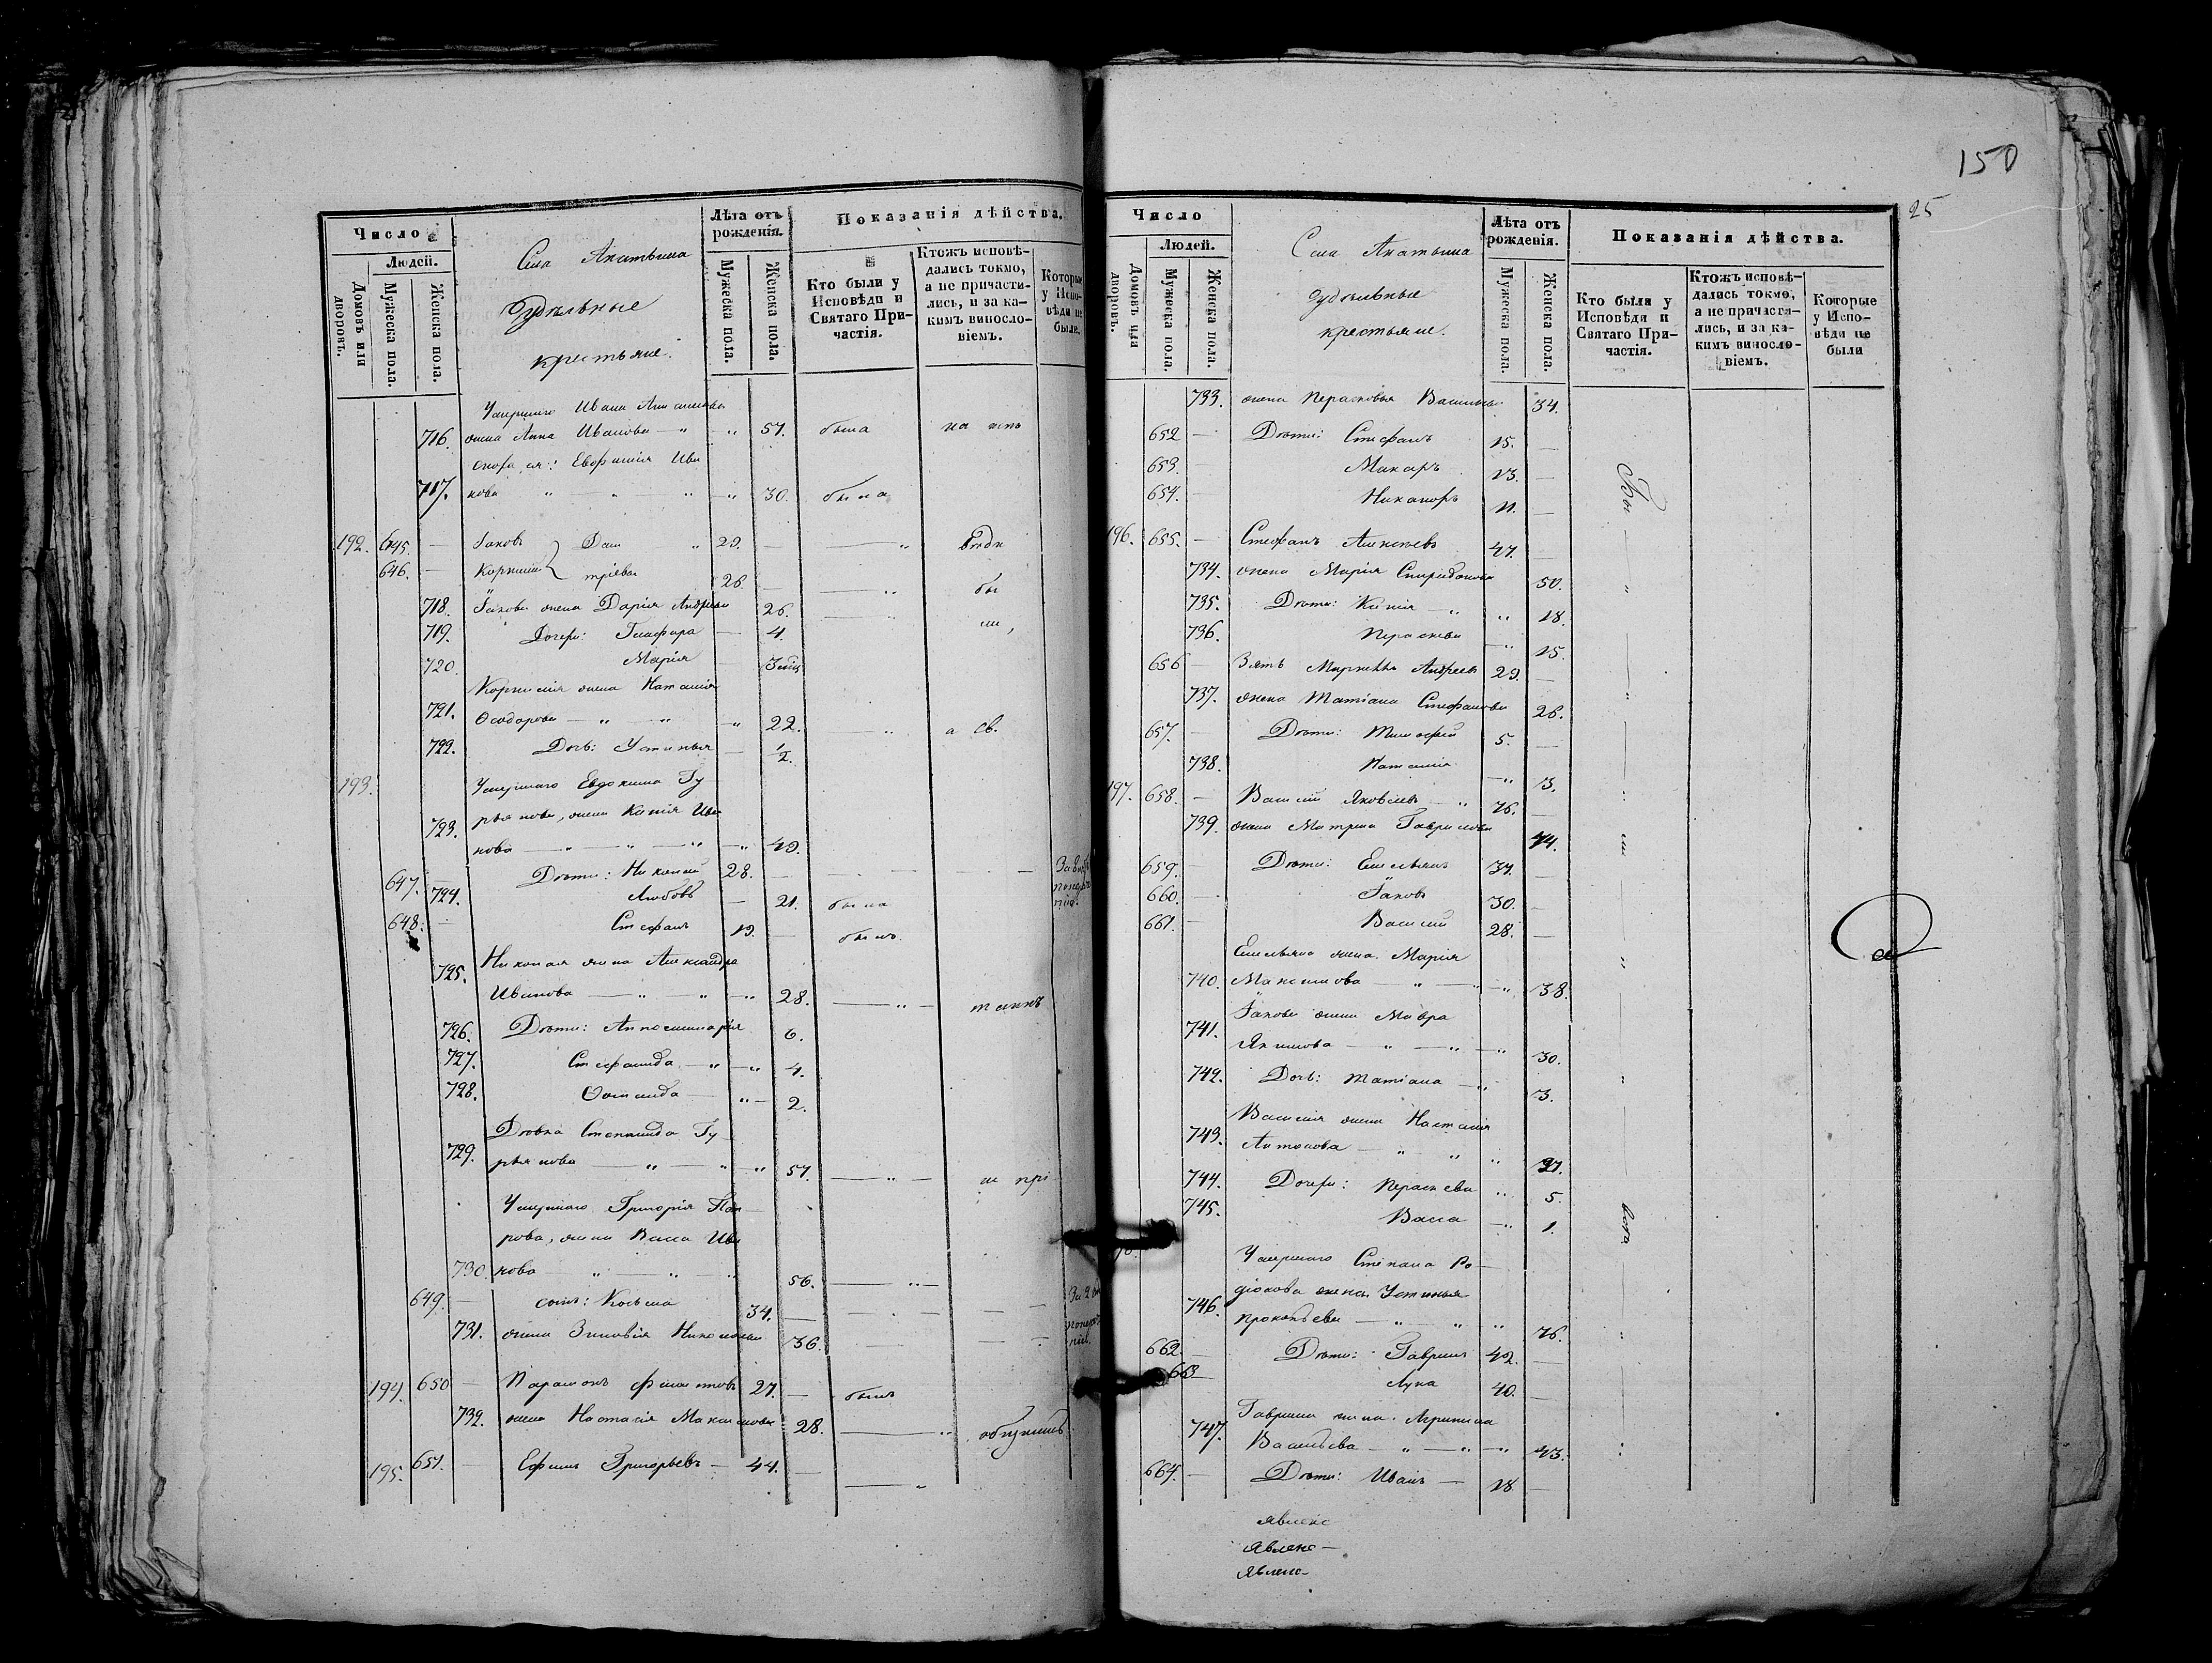 150
25
Число
Людей.
Домовъ или дворовъ.
Мужеска пола.
Женска пола.
Села
Удѣльные
крестьяне.
Лѣта отъ рожденія.
Мужеска пола.
Женска пола.
Показанія дѣйства.
Кто были у Исповѣди и Святаго Причастія.
Ктожъ исповѣдались токмо, а не причастились, и за какимъ винословіемъ.
Которые у Исповѣди не были.
Умершаго Ивана
716. жена Анна Иванова — " — " 51. была
Евфимія Ива
717. нова " — " " — " 30. была
192. 645. — Іаковъ " 29. —
646. — Корнилій 26. —
718. Іакова жена Дарія Андреева 26.
719. Дочери: Глафира — 4.
720. Марія —
Корнилія жена Наталія
721. Ѳеодорова — " — " — " 22.
722. Дочь: Устинья — 1/2.
193. Умершаго Евдокима Гу
723. рьянова, жена Ксенія Ива
нова — " — " — " — " 49.
647. — Дѣти: Николай 28. —
724. Любовь — 21. была
648. — Стефанъ 19. — былъ.
725. Николая жена Александра
Иванова — " — " — " 28. — " —
726. Дѣти: Апполинарія 6.
727. — " — " 4.
728. — " — 2.
Дѣвка Степанида Гу
729. рьянова — " — " — " 51. — " —
Умершаго Григорія
рова, жена Васса Ива
730. нова " — " — " 56. — " —
649. — сынъ: Косьма 34. —
731. жена Зиновія Николаева 36.
194. 650 — Парамонъ 27. — былъ
732. жена Настасія Максимова 28. — "
195. 651. — Ефимъ Григорьевъ — 44. — "
Число
Людей.
Домовъ или дворовъ.
Мужеска пола.
Женска пола.
Села
Удѣльные
крестьяне.
Лѣта отъ рожденія.
Мужеска пола.
Женска пола.
Показанія дѣйства.
Кто были у Исповѣди и Святаго Причастія.
Ктожъ исповѣдались токмо, а не причастились, и за какимъ винословіемъ.
Которые у Исповѣди не были
733. жена Перасковья Васильева 34.
652 — Дѣти: Стефанъ 15. —
653. — Макаръ 13. —
654. — Никаноръ 11. —
196. 655. — Стефанъ Алексѣевъ 47. —
734. жена Марія Спиридонова 50.
735. Дѣти: Ксенія — " " 18.
736. Перасковья — " 15.
656 — Зять Андреевъ 29. —
737. жена Татіана Стефанова 26.
657. — Дѣти: Тимофей 5. —
738. Наталія — " 3.
197. 658. — Василій Яковлевъ — " 76. —
739. жена Матрена Гаврилова 74.
659. — Дѣти: Емельянъ 34. —
660. — Іаковъ 30. —
661. — Василій 28. —
Емельяна жена Марія
740. Максимова — " — " — " 38.
Іакова жена Мавра
741. Якимова — " — " — " 30.
742. Дочь: Татіана — " 3.
Василія жена Настасія
743. Антонова — " — " " 27.
744. Дочери: Перасковья " 5.
745. Васса — " 1.
Умершаго Степана Ро
діонова жена Устинья
746. Прокопьева — " — " " 76.
662. — Дѣти: Гаврилъ 42. —
663 — Лука 40. —
Гаврила жена Агрипина
747. Васильева — " — " — " 43.
664. — Дѣти: Иванъ — 18. —
явлено
явлено —
явлено —